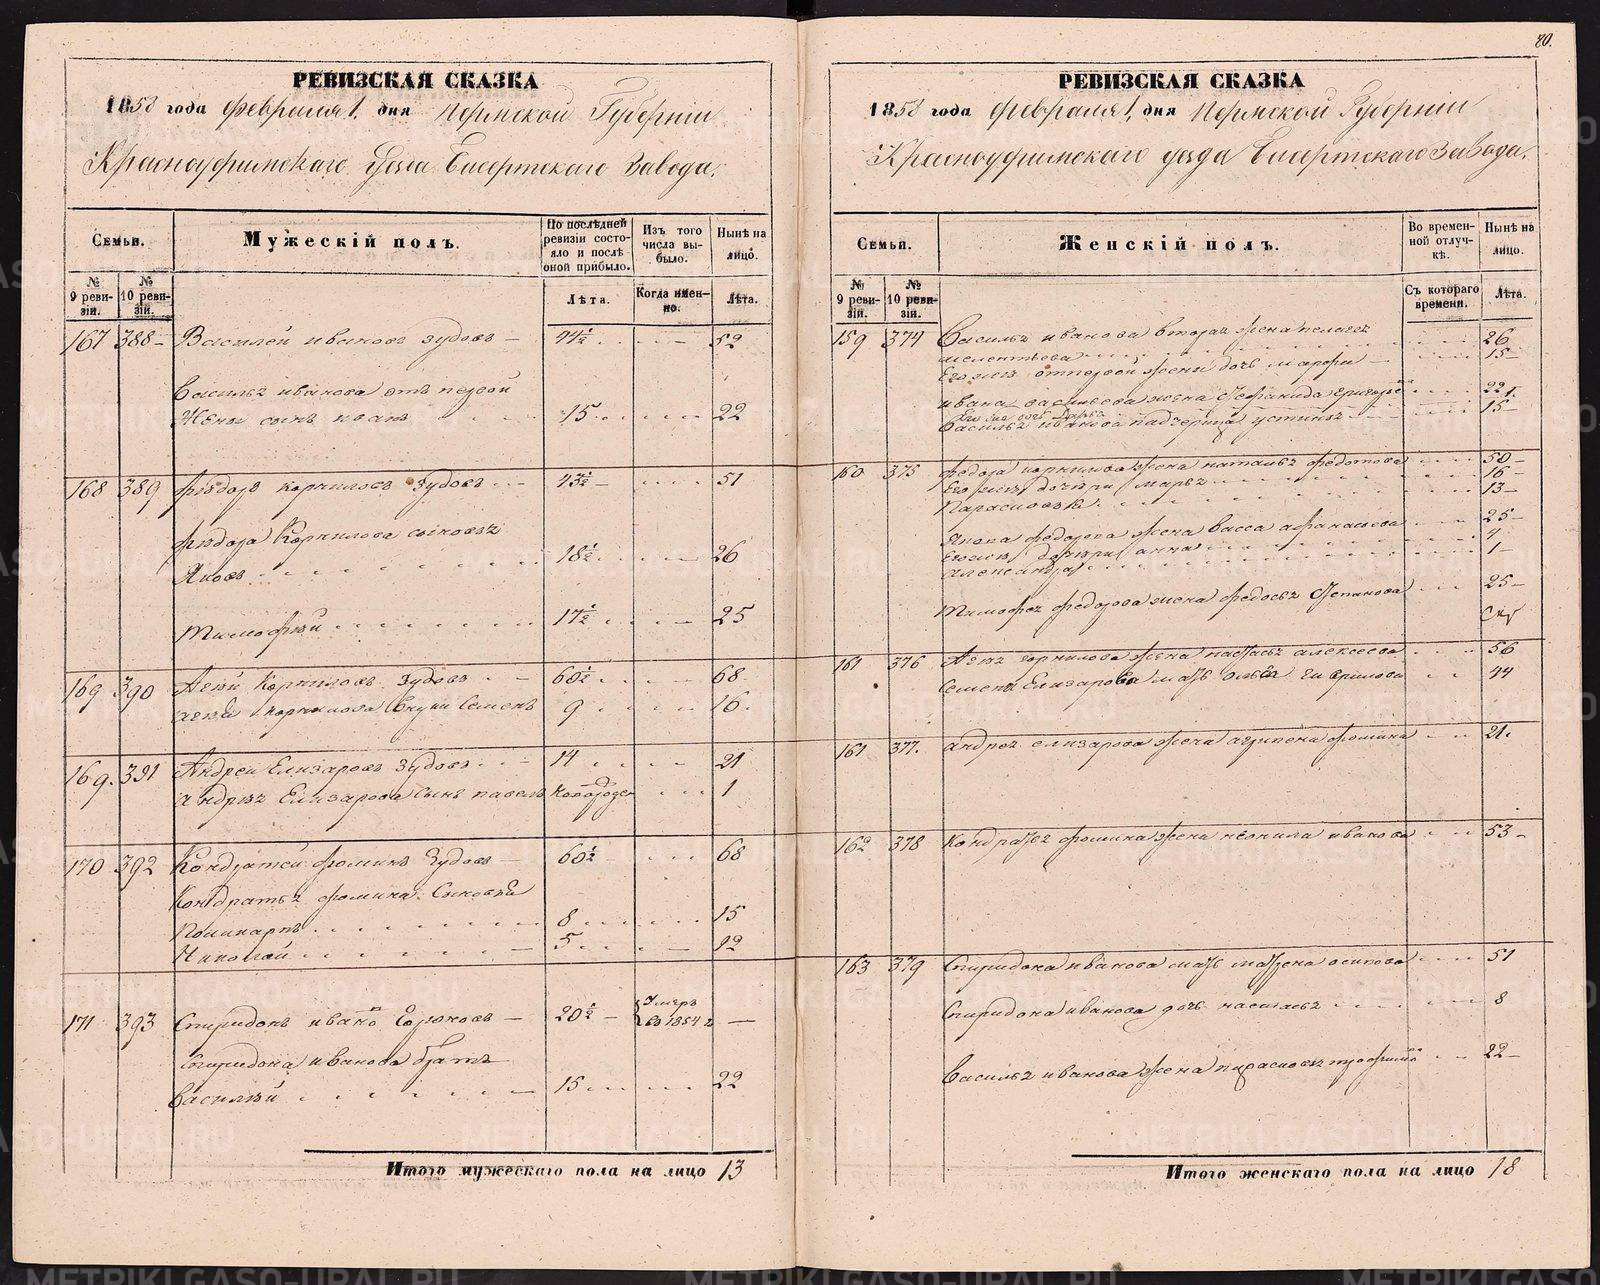 РЕВИЗСКАЯ СКАЗКА
1858 года февраля 1. дня Пермской Губерніи
Красноуфимскаго Уезда Бисертскаго Завода.
Семьи.
Мужескій полъ.
По послѣдней ревизіи состояло и послѣ оной прибыло.
Изъ того числа выбыло.
Нынѣ на лицо.
№ 9 ревизіи.
№ 10 ревизіи.
Лѣта.
Когда именно.
Лѣта.
167 388 Василей иванов зудовъ 44½ 52
Василья иванова отъ первой
Жены сынъ иванъ 15 22
168 389 Фёдоръ корниловъ Зудовъ 43½ 51
Фёдора Корнилова сыновья
Яковъ 18½ 26
Тимофей 17½ 25
169 390 Агей Корниловъ Зудовъ 60½ 68
Агея корнилова внукъ Семенъ 9 16.
169. 391 Андрей Елизаровъ Зудовъ 14 21
Андрея Елизарова сынъ павелъ 1
170 392 Кондратей фоминъ Зудовъ 60½ 68
Кондратья фомина Сыновья
Поликарпъ 8 15
Николай 5 12
171 393 Спиридонъ ивановъ 20½ Умеръ въ 1854 г —
Спиридона иванова братъ
Василей 15 22
Итого мужескаго пола на лицо 13
80.
РЕВИЗСКАЯ СКАЗКА
1858 года февраля 1. дня Пермской Губерніи
Красноуфимскаго уезда Бисертскаго завода.
Семьи.
Женскій полъ.
Во временной отлучкѣ.
Нынѣ на лицо.
№ 9 ревизіи.
№ 10 ревизіи.
Съ котораго времени.
Лѣта.
159 374 Василья иванова вторая жена пелагея
мелентьева 26
Его же отпервой жены дочь марфа 15
ивана васильева жена Стефанида 22
Его же дочь Дарья 1.
Василья иванова падчерица устинья 15
160 375 федора корнилова жена наталья федотова 50
Его же дочери марья 16
Парасковья 13
Якова федорова жена васса афанасьева 25
Его же дочери анна 4
александра 1
Тимофея федорова жена федосья Степанова 25
161 376 Агея корнилова жена наталья алексеева 56
Семена Елизарова мать 44
161 377. андрея елизарова жена агрипена фомина 21.
162 378 Кондратья фомина жена неонила иванова 53
163 379 Спиридона иванова мать матрена осипова 51
Спиридона иванова дочь настасья 8
Василья иванова жена парасковья 22
Итого женскаго пола на лицо 18